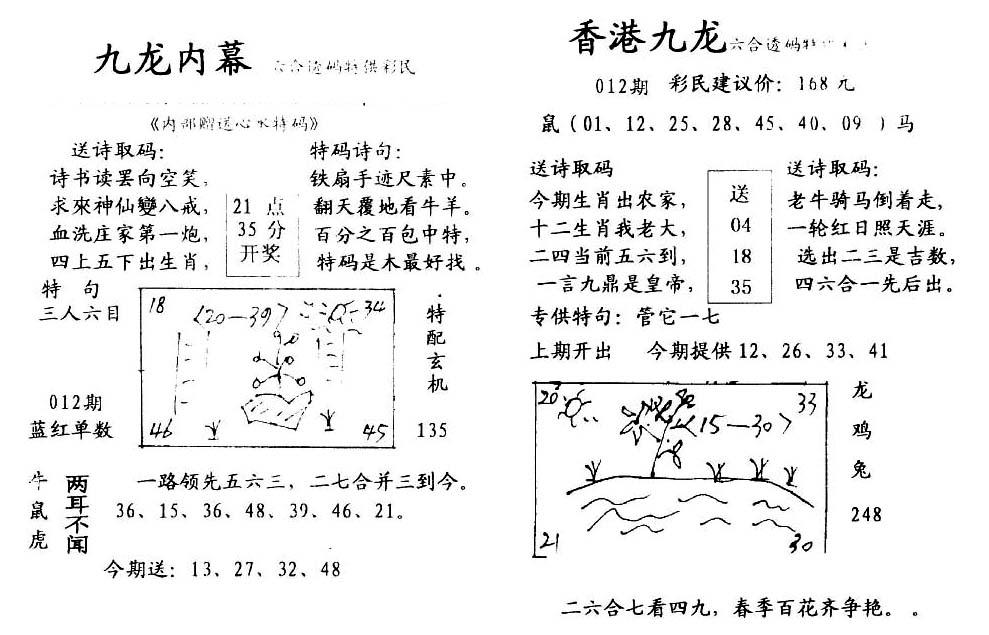 九龙内幕 六合透码特供彩民
《内部赠送心水特码》
送诗取码：
诗书读罢向空笑，
求來神仙變八戒，
血洗庄家第一炮，
四上五下出生肖，
21 点
35 分
开奖
特码诗句：
铁扇手迹尺素中。
翻天覆地看牛羊。
百分之百包中特，
特码是木最好找。
特 句
三人六目
012期
蓝红单数
18
〈20—39〉
34
46
45
特配玄机
135
牛
鼠
虎
两耳不闻
一路领先五六三，二七合并三到今。
36、15、36、48、39、46、21。
今期送：13、27、32、48
香港九龙 六合透码特
012期 彩民建议价：168 元
鼠（01、12、25、28、45、40、09 ）马
送诗取码
今期生肖出农家，
十二生肖我老大，
二四当前五六到，
一言九鼎是皇帝，
送
04
18
35
送诗取码：
老牛骑马倒着走，
一轮红日照天涯。
选出二三是吉数，
四六合一先后出。
专供特句：管它一七
上期开出 今期提供 12、26、33、41
20
33
〈15—30〉
21
30
龙
鸡
兔
248
二六合七看四九，春季百花齐争艳。 。